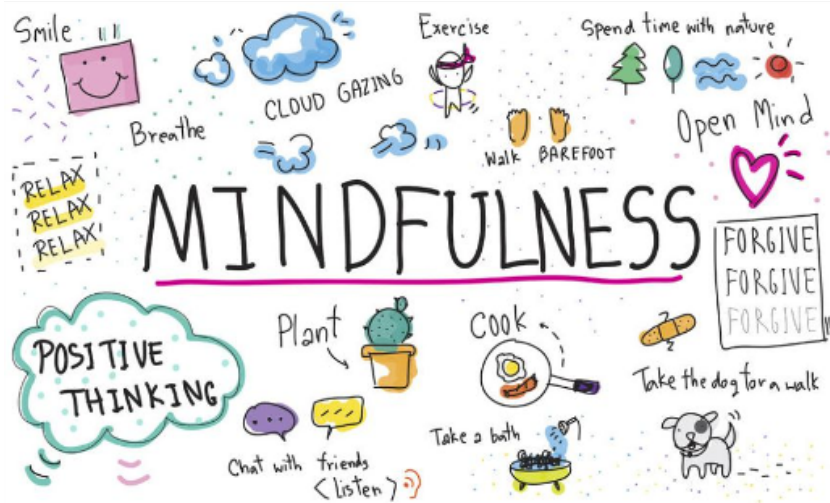 Smile
Breathe
CLOUD GAZING
Exercise
Spend time with nature
Walk BAREFOOT
Open Mind
RELAX
RELAX
RELAX
MINDFULNESS
FORGIVE
FORGIVE
FORGIVE
POSITIVE
THINKING
Plant
Cook
Take the dog for a walk
Chat with friends
<Listen>
Take a bath